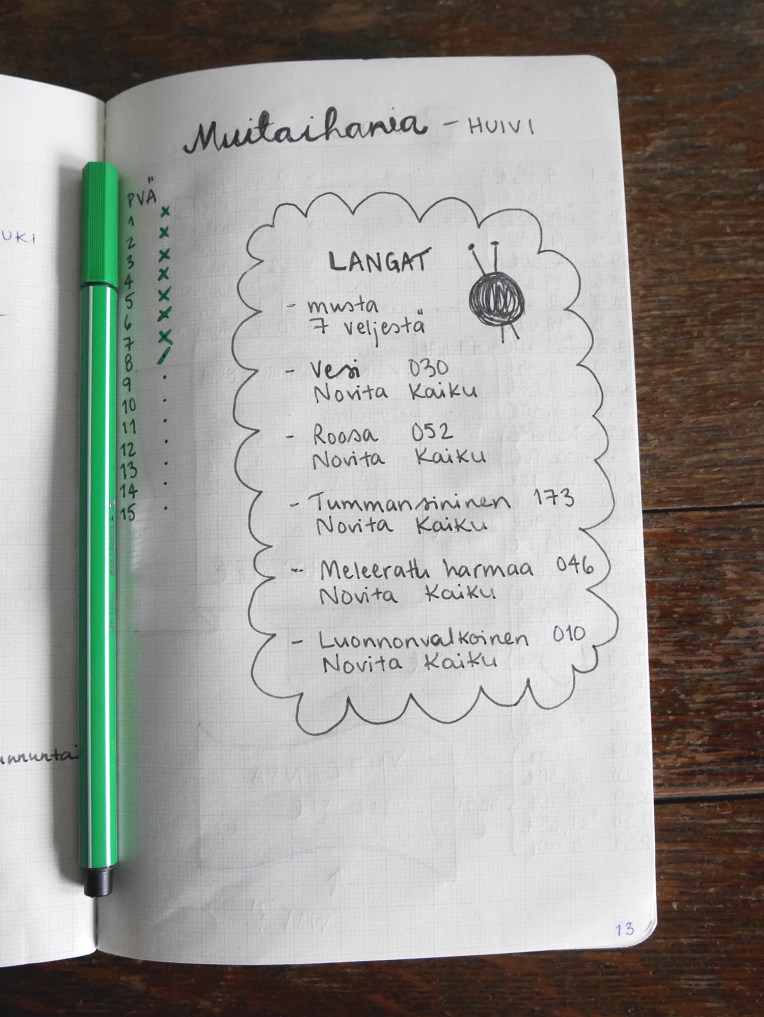 Muitaihania - HUIVI
PVÄ
1 x
2 x
3 x
4 x
5 x
6 x
7 x
8 \
9 .
10 .
11 .
12 .
13 .
14 .
15 .
LANGAT
- musta
7 veljestä
- Vesi 030
Novita Kaiku
- Roosa 052
Novita Kaiku
- Tummansininen 173
Novita Kaiku
- Meleerattu harmaa 046
Novita Kaiku
- Luonnonvalkoinen 010
Novita Kaiku
13
UKI
unnuntai